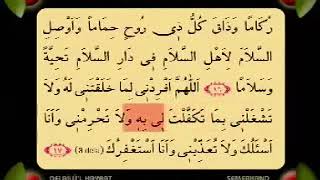 رُكَامًا وَذَاقَ كُلُّ ذٖى رُوحٍ حِمَامًا وَاَوْصِلِ
السَّلَامَ لِاَهْلِ السَّلَامِ فٖى دَارِ السَّلَامِ تَحِيَّةً
وَسَلَامًا ﴿٤٦﴾ اَللّٰهُمَّ اَفْرِدْنٖى لِمَا خَلَقْتَنٖى لَهُ وَلَا
تَشْغَلْنٖى بِمَا تَكَفَّلْتَ لٖى بِهٖ وَلَا تَحْرِمْنٖى وَاَنَا
اَسْئَلُكَ وَلَا تُعَذِّبْنٖى وَاَنَا اَسْتَغْفِرُكَ ﴿3 defa﴾ ﴿٤٧﴾
DELAILÜ'L HAYRAT SEMERKAND